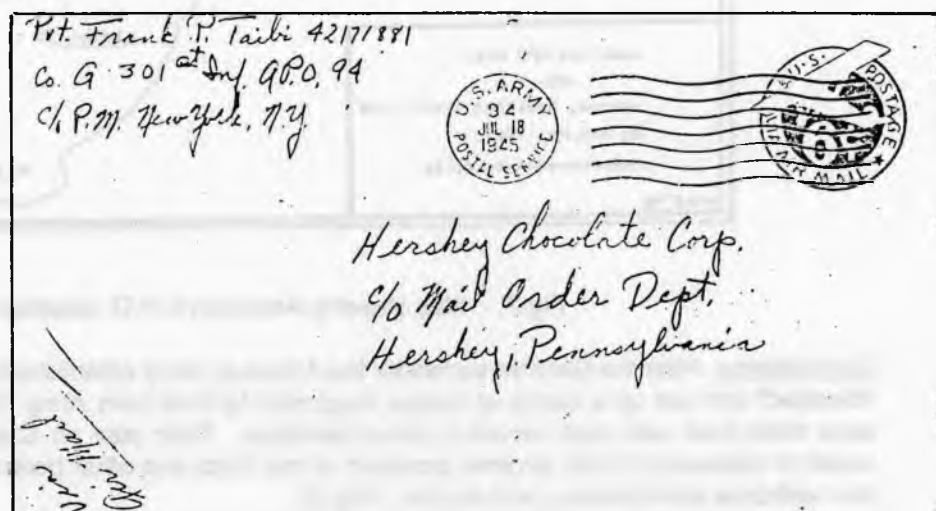 Pvt. Frank P. Taibi 42171881
Co. G 301st Inf. A.P.O. 94
c/o P.M. New York, N.Y.
U.S. ARMY
94
JUL 18
1945
POSTAL SERVICE
U.S. POSTAGE
AIR MAIL
6
Hershey Chocolate Corp.
c/o Mail Order Dept.
Hershey, Pennsylvania
Via
Air Mail